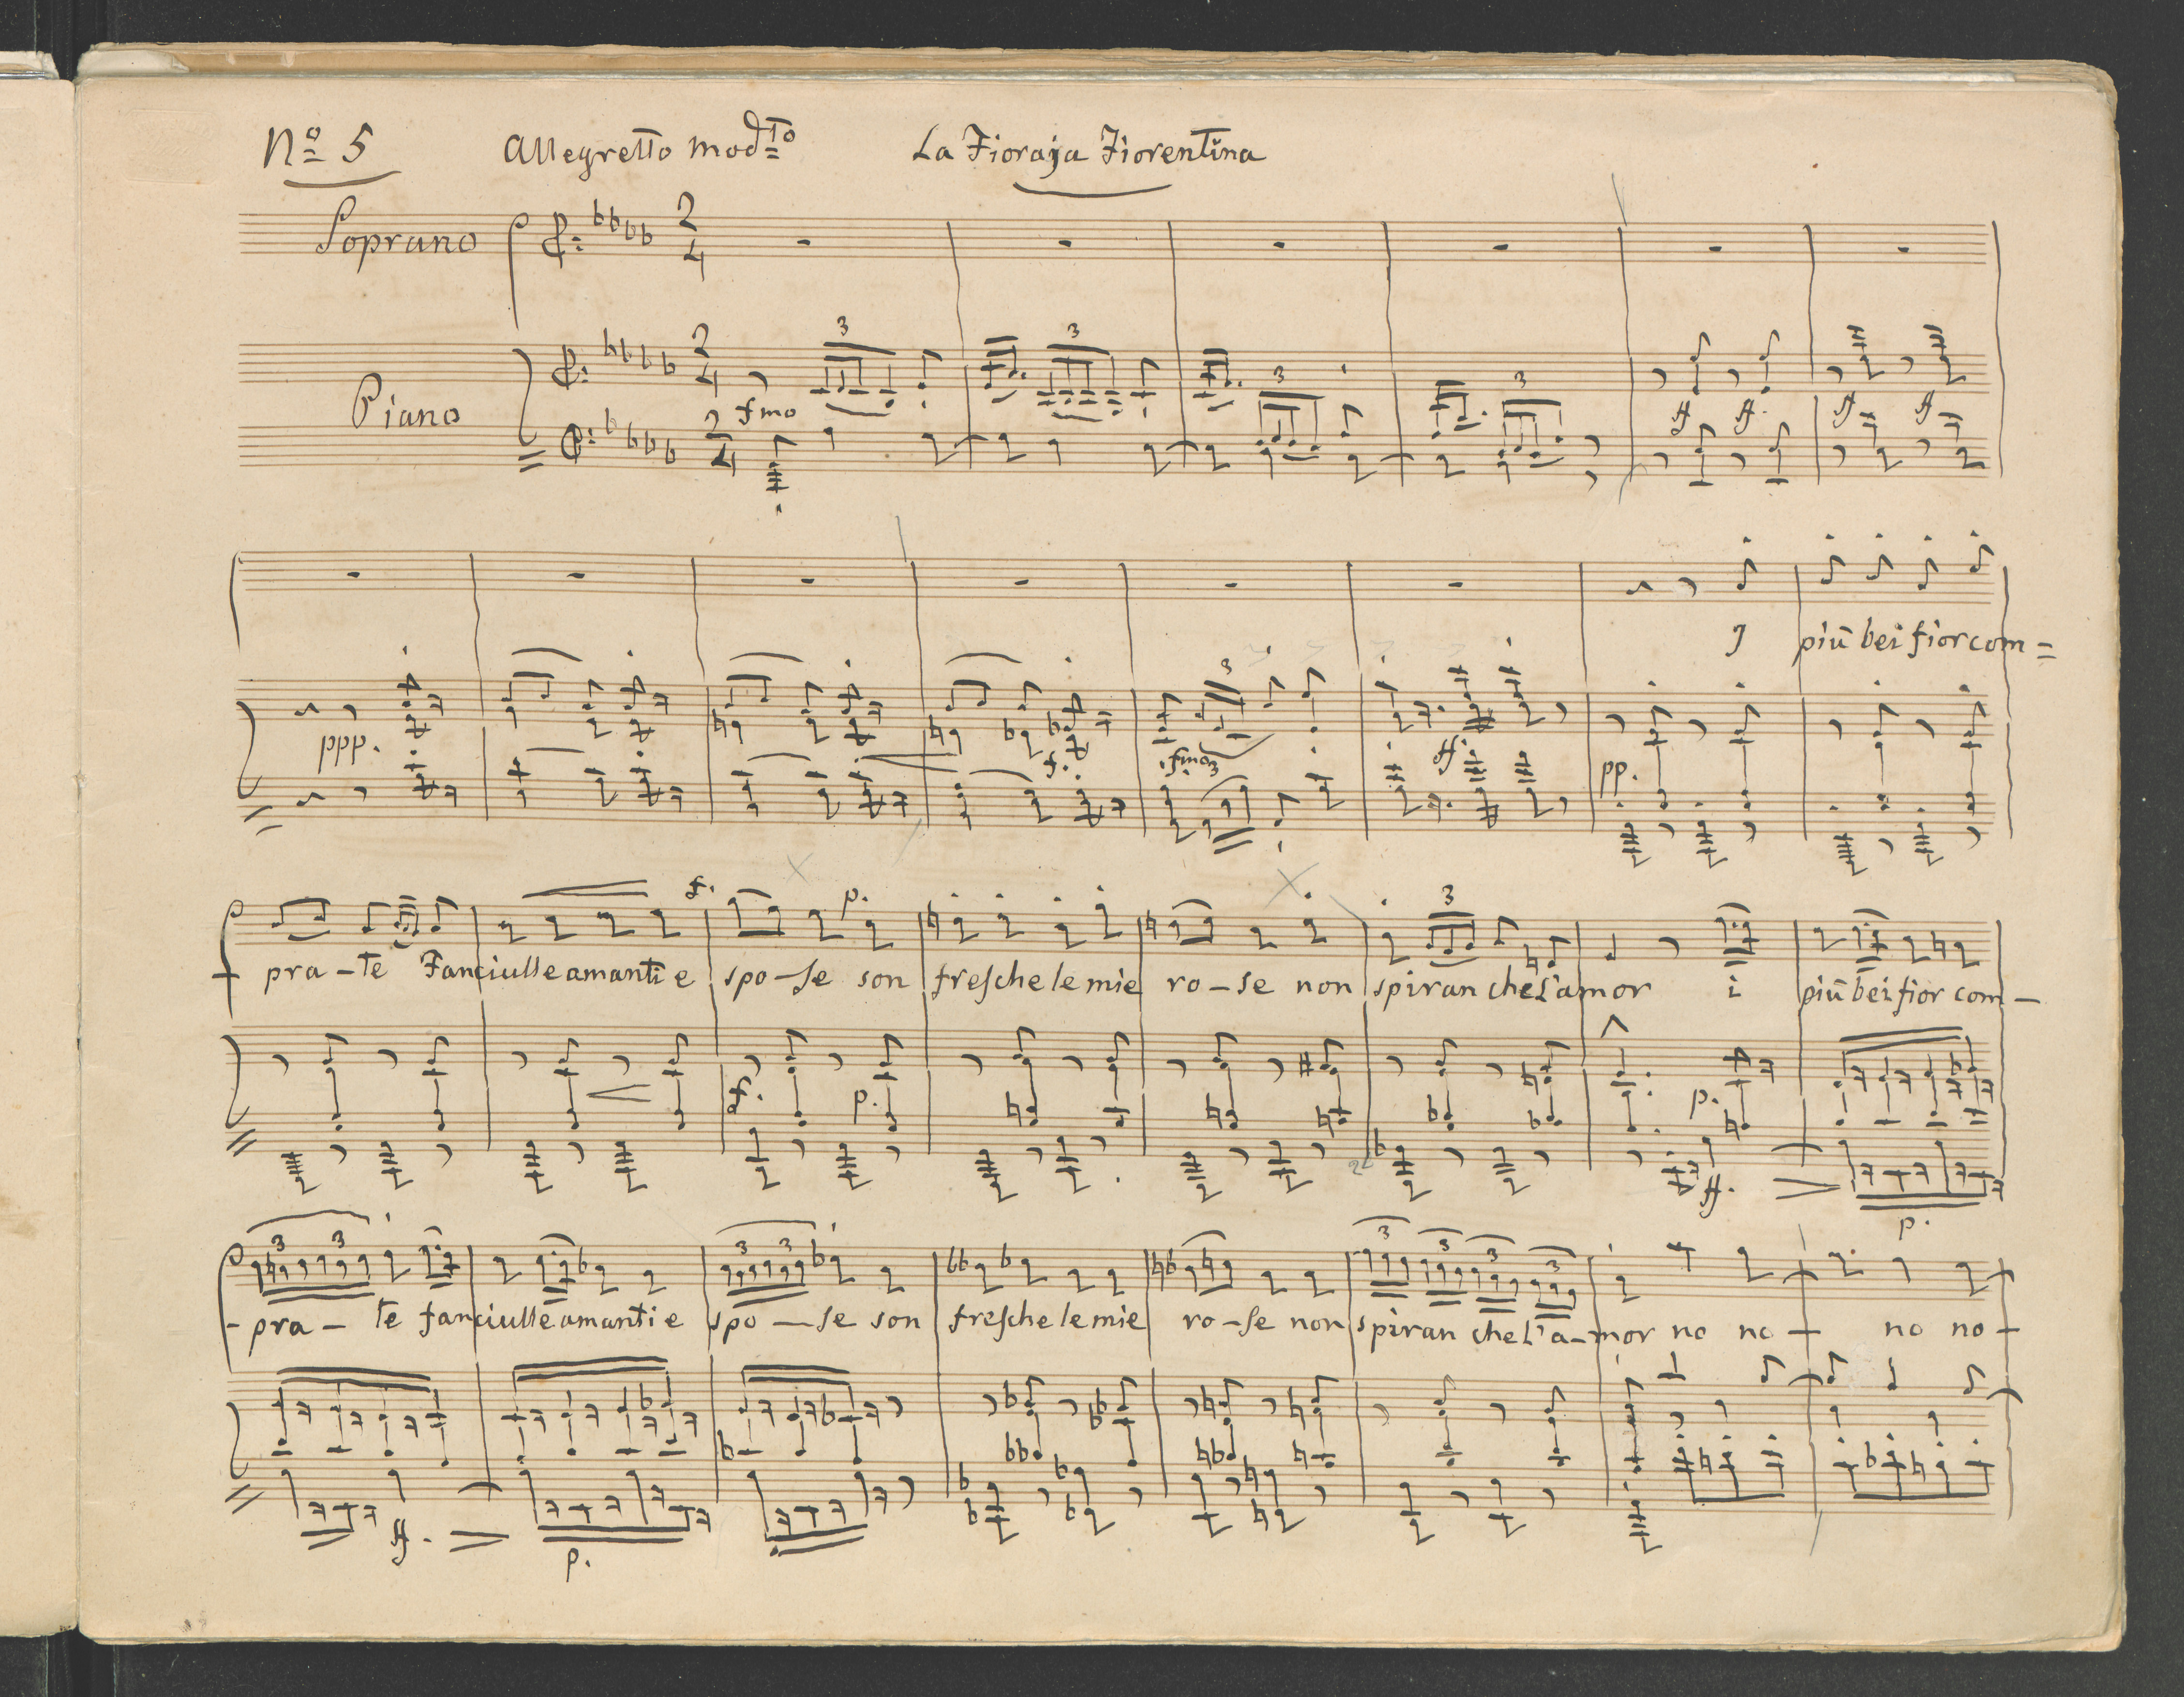 Nº 5 Allegretto Modto La Fioraja Fiorentina
Soprano
2 4
3 3 3 3
2 4
fmo ff ff. ff ff
Piano
2 4
I più bei fior com=
3
ppp. f. fmo 3 ff pp.
f. p. 3
pra-te Fanciulle amanti e spo-se son fresche le mie ro-se non spiran che l'amor i più bei fior com-
f. p. p.
ff. p.
3 3 3 3 3 3 3 3
-pra-te fanciulle amanti e spo-se son fresche le mie ro-se non spiran che l'a-mor no no- no no-
ff. p.